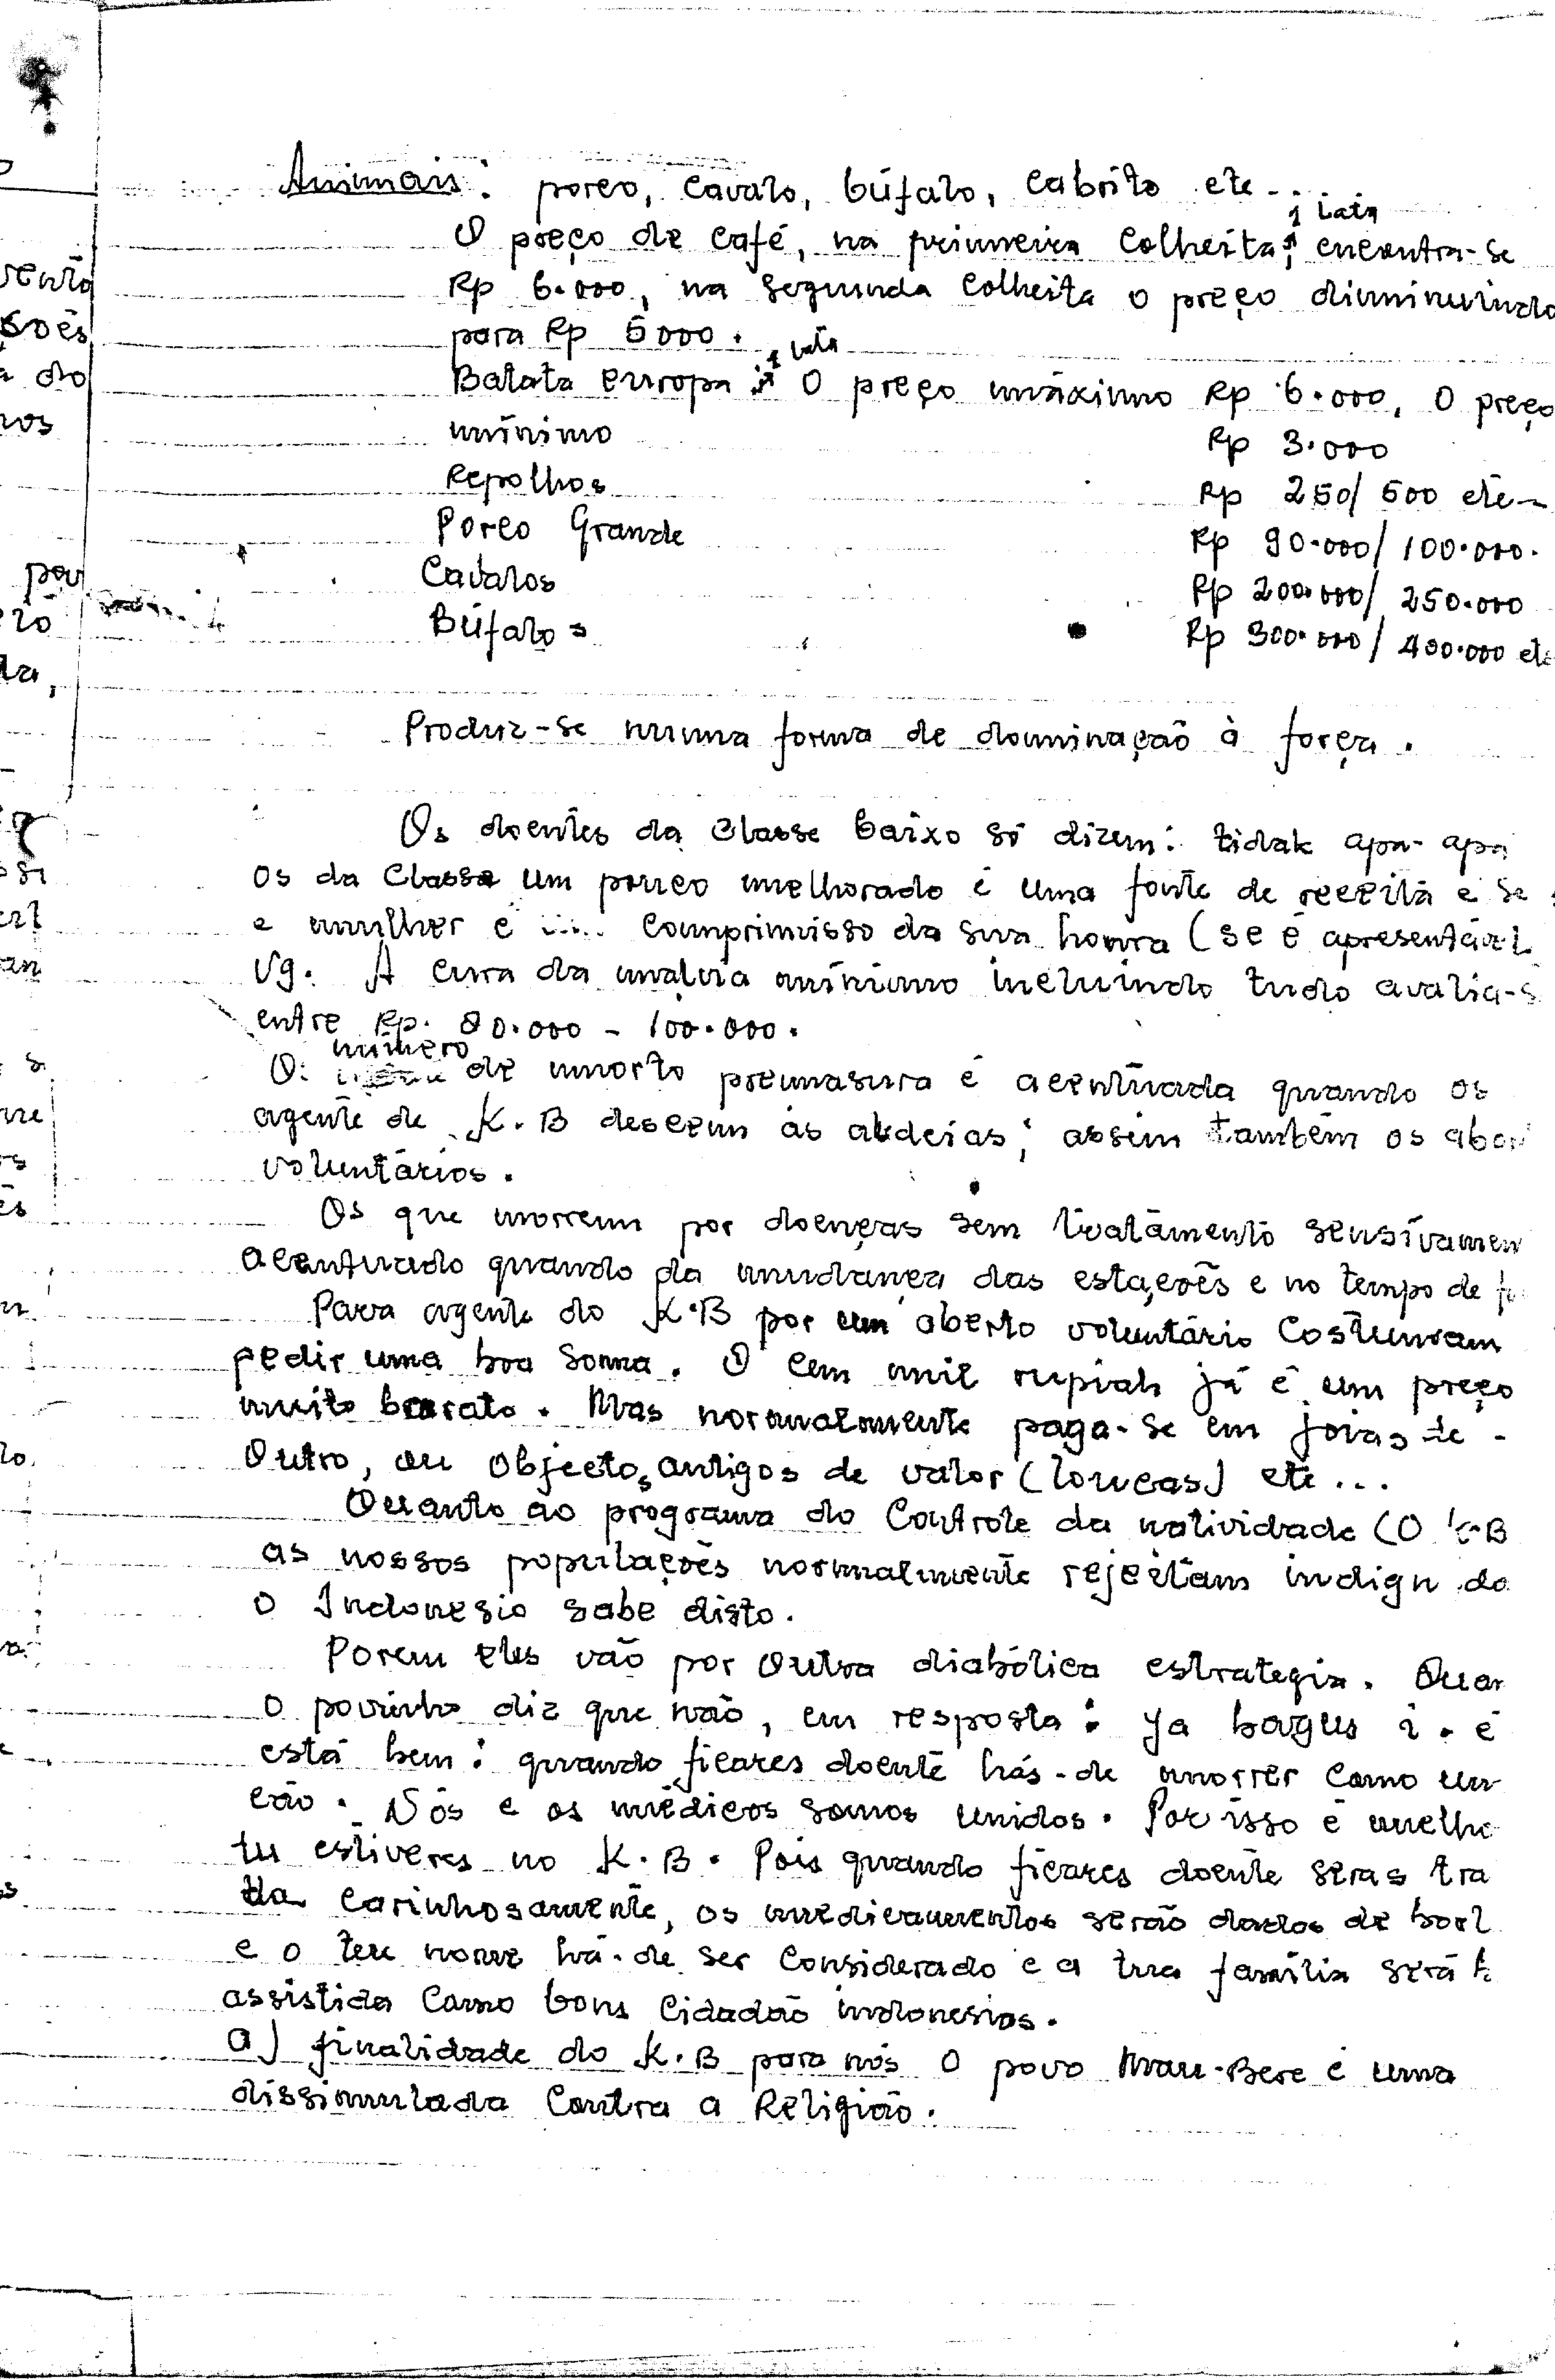 Animais: porco, cavalo, búfalo, cabrito etc...
1 lata
O preço de café, na primeira colheita, encontra-se
Rp 6.000, na segunda colheita o preço diminuindo
para Rp 5000.
1 lata
Batata europa O preço máximo Rp 6.000, O preço
mínimo Rp 3.000
Repolhos Rp 250/ 500 etc-
Porco Grande Rp 90.000/ 100.000.
Cavalos Rp 200.000/ 250.000
Búfalos Rp 300.000/ 400.000 etc
Produz-se numa forma de dominação à força.
Os doentes da classe baixo só dizem: tidak apa-apa
os da classe um pouco melhorado é uma fonte de receita e se
e mulher é .... comprimisso da sua honra (se é apresentável
vg. A cura da malvia mínimo incluindo tudo avalia-s
entre Rp. 80.000 - 100.000.
número
O. de morto premasura é acentuada quando os
agente de K.B descem às aldeias; assim também os abor
voluntários.
Os que morrem por doenças sem tratamento sensívamen
acentuado quando da mudança das estações e no tempo de
Para agente do K.B por um aberto voluntário costumam
pedir uma boa soma. O cem mil rupiah já é um preço
muito barato. Mas normalmente paga-se em joias de -
Outro, ou objectos antigos de valor (loucas) etc...
Quanto ao programa do Controle da natividade (O K.B
as nossos populações normalmente rejeitam indign do
o Indonesio sabe disto.
Porem eles vão por outra diabólica estrategia. Quan
o povinho diz que não, em resposta: ya bagus i.é
está bem: quando ficares doente hás-de morrer como um
cão. Nós e os médicos somos unidos. Por isso é melho
tu estiveres no K.B. Pois quando ficares doente seras tra
da carinhosamente, os medicamentos serão dados de borl
e o teu nome há-de ser considerado e a tua família será
assistida como bons cidadão indonesios.
a) finalidade do K.B para nós o povo Mau-Bere é uma
dissimulada contra a Religião.